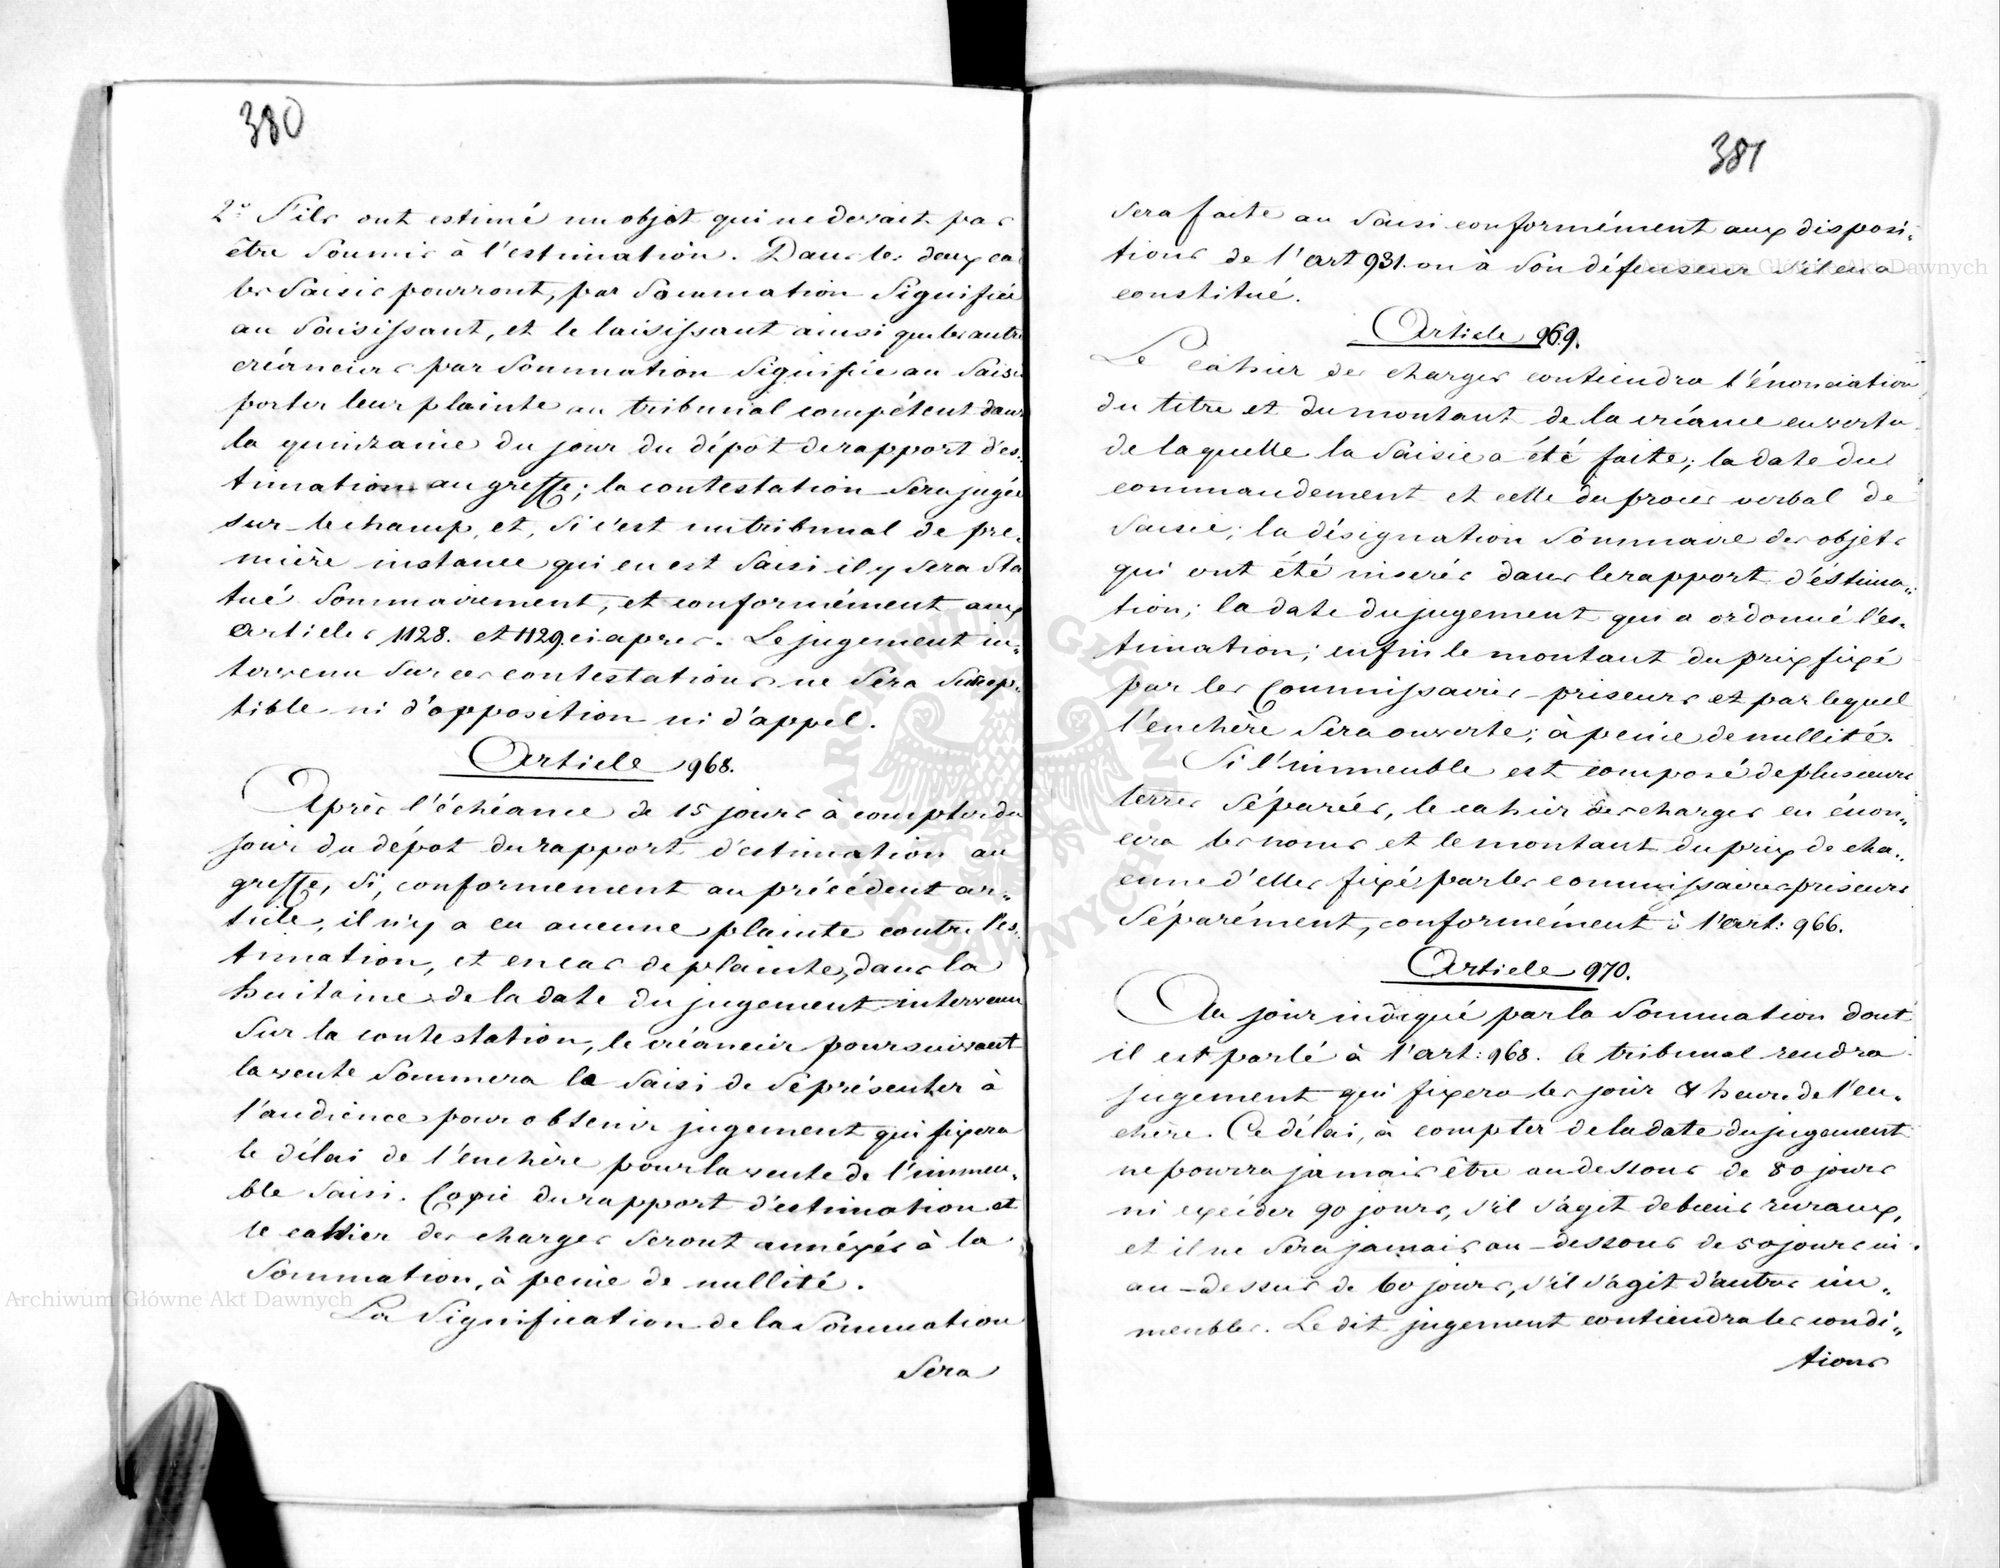 380
2° S'ils ont estimé un objet qui ne devait pas
être soumis à l'estimation. Dans les deux cas
les saisis pourront, par sommation signifiée
au saisissant, et le saisissant ainsi que les autres
créanciers par sommation signifiée au saisi
porter leur plainte au tribunal compétent dans
la quinzaine du jour du dépôt de rapport d'es-
timation au greffe; la contestation sera jugée
sur-le champ, et, si c'est un tribunal de pre-
mière instance qui en est saisi il y sera sta
tué sommairement, et conformément aux
articles 1128. et 1129. ci après. Le jugement in-
tervenu sur ces contestations ne sera suscep-
tible ni d'opposition ni d'appel.
Article 968.
Après l'échéance de 15 jours à compter du
jour du dépôt du rapport d'estimation au
greffe, si, conformement au précédent ar-
ticle, il n'y a eu aucune plainte contre l'es-
timation, et en cas de plainte, dans la
huitaine de la date du jugement intervenu
sur la contestation, le créancier poursuivant
la vente sommera le saisi de se présenter à
l'audience pour obtenir jugement qui fixera
le délai de l'enchère pour la vente de l'immeu-
ble saisi. Copie du rapport d'estimation et
le cahier des charges seront annéxés à la
sommation, à peine de nullité.
La signification de la sommation
sera
381
sera faite au saisi conformément aux disposi-
tions de l'art 931. ou à son défenseur s'il en a
constitué.
Article 969.
Le cahier des charges contiendra l'énonciation
du titre et du montant de la créance en vertu
de laquelle la saisie a été faite; la date du
commandement et celle du procès verbal de
saisie; la désignation sommaire des objets
qui ont été insérés dans le rapport d'éstima-
tion; la date du jugement qui a ordonné l'es-
timation; enfin le montant du prix fixé
par les Commissaires-priseurs et par lequel
l'enchère sera ouverte; à peine de nullité.
Si l'immeuble est composé de plusieurs
terres séparées, le cahier des charges en énon-
cera les noms et le montant du prix de cha-
cune d'elles fixé par les commissaires priseurs
séparément, conformément à l'art: 966.
Article 970.
Au jour indiqué par la sommation dont
il est parlé à l'art: 968. le tribunal rendra
jugement qui fixera les jour & heure de l'en-
chère. Ce délai, à compter de la date du jugement
ne pourra jamais être au dessous de 80 jours
ni excéder 90 jours, s'il s'agit de biens ruraux,
et il ne sera jamais au-dessous de 50 jours ni
au-dessus de 60 jours, s'il s'agit d'autres im-
meubles. Le dit jugement contiendra les condi-
tions
Archiwum Główne Akt Dawnych
Archiwum Główne Akt Dawnych